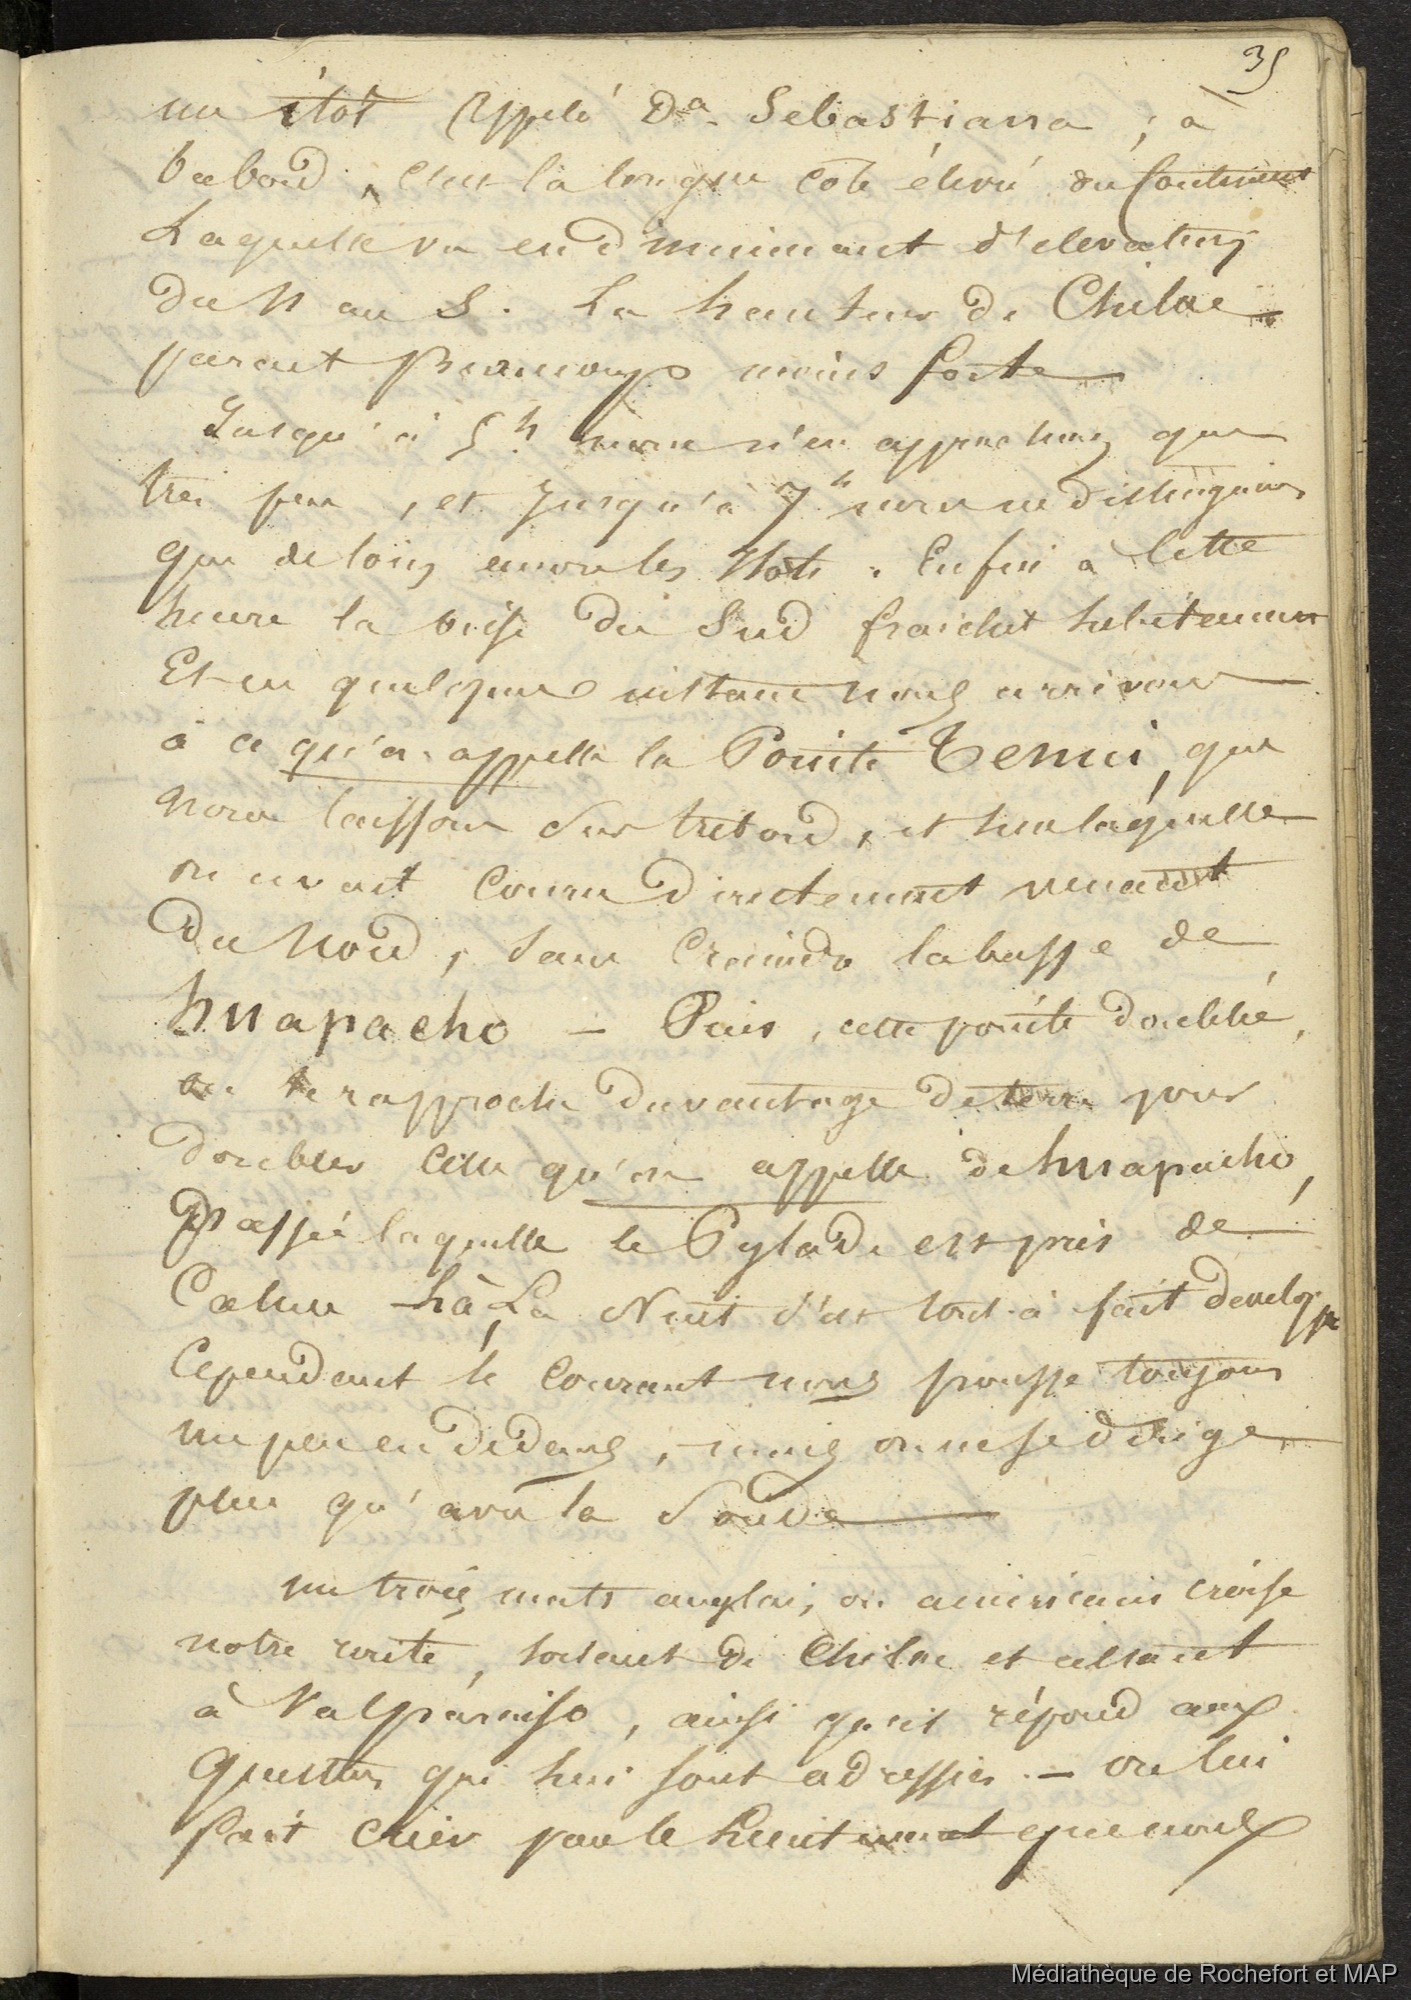 35
un îlot appelé Da. Sebastiana ; a
babord, c'est la longue côte élevée du Continent
Laquelle va en diminuant d'elevation
du N au S. La hauteur de Chiloe
parait beaucoup moins forte
Jusqu'à 5h. nous n'en approchons que
très peu, et jusqu'à 7h nous ne distinguions
que de loin encore les Ilots. Enfin à cette
heure la brise du Sud fraichit subitement
Et en quelques instans nous arrivons
à ce qu'on appelle la Pointe Tenui, que
nous laissons sur tribord, et sur laquelle
on avait couru directement venant
du Nord, sans craindre la basse de
huapacho – Puis, cette pointe doublée,
on se rapproche davantage de terre pour
doubler celle qu'on appelle de huapacho,
Passée laquelle le Pylade est pris de
Calme là, La Nuit s'est tout à fait developpe
Cependant le Courant nous pousse toujours
un peu en dedans, mais on ne se dirige
plus qu'avec la Sonde
un trois mats anglais, ou americain croise
notre route, sortant de Chiloe et allant
à Valparaiso, ainsi qu'il répond aux
Questions qui lui sont adressées. – on lui
fait crier par le Lieutenant que nous
Médiathèque de Rochefort et MAP